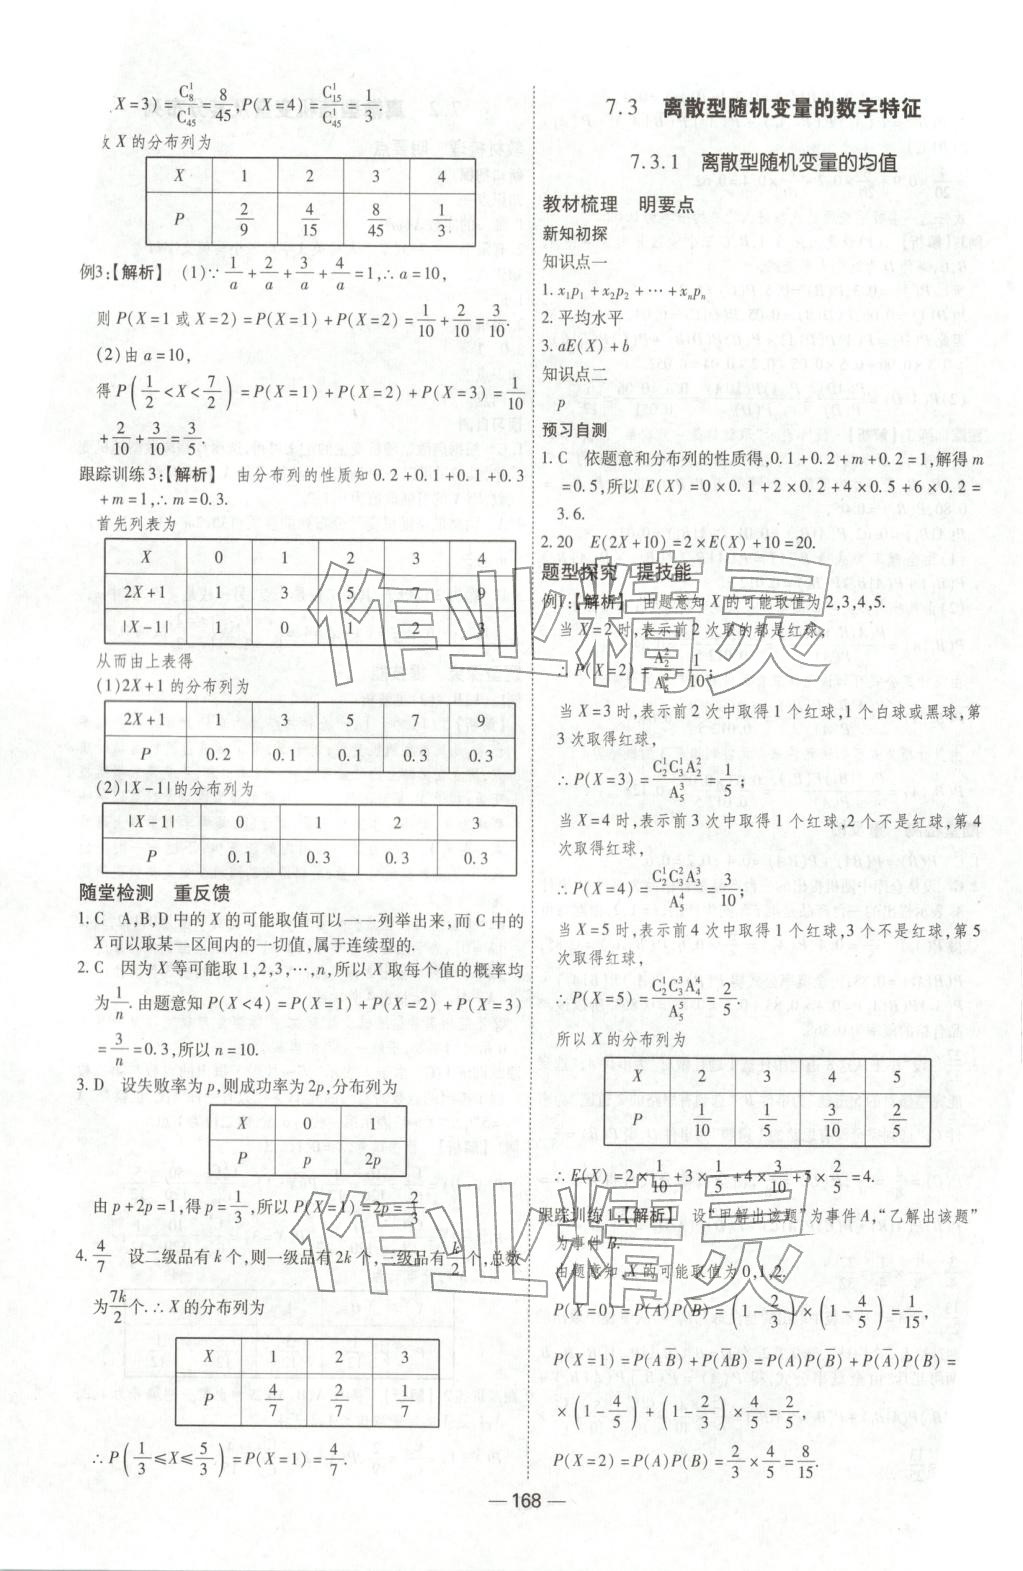 X=3)=C₈¹/C₄₅¹=8/45,P(X=4)=C₁₅¹/C₄₅¹=1/3.
X的分布列为
X 1 2 3 4
P 2/9 4/15 8/45 1/3
例3:【解析】 (1)∵1/a+2/a+3/a+4/a=1,∴a=10,
则P(X=1或X=2)=P(X=1)+P(X=2)=1/10+2/10=3/10.
(2)由a=10,
得P(1/2<X<7/2)=P(X=1)+P(X=2)+P(X=3)=1/10
+2/10+3/10=3/5.
跟踪训练3:【解析】 由分布列的性质知0.2+0.1+0.1+0.3
+m=1,∴m=0.3.
首先列表为
X 0 1 2 3 4
2X+1 1 3 5 7 9
|X-1| 1 0 1 2 3
从而由上表得
(1)2X+1的分布列为
2X+1 1 3 5 7 9
P 0.2 0.1 0.1 0.3 0.3
(2)|X-1|的分布列为
|X-1| 0 1 2 3
P 0.1 0.3 0.3 0.3
随堂检测 重反馈
1.C A,B,D中的X的可能取值可以一一列举出来,而C中的
X可以取某一区间内的一切值,属于连续型的.
2.C 因为X等可能取1,2,3,…,n,所以X取每个值的概率均
为1/n.由题意知P(X<4)=P(X=1)+P(X=2)+P(X=3)
=3/n=0.3,所以n=10.
3.D 设失败率为p,则成功率为2p,分布列为
X 0 1
P p 2p
由p+2p=1,得p=1/3,所以P(X=1)=2p=2/3.
4.4/7 设二级品有k个,则一级品有2k个,三级品有k/2个,总数
为7k/2个.∴X的分布列为
X 1 2 3
P 4/7 2/7 1/7
∴P(1/3≤X≤5/3)=P(X=1)=4/7.
7.3 离散型随机变量的数字特征
7.3.1 离散型随机变量的均值
教材梳理 明要点
新知初探
知识点一
1.x₁p₁+x₂p₂+…+xₙpₙ
2.平均水平
3.aE(X)+b
知识点二
p
预习自测
1.C 依题意和分布列的性质得,0.1+0.2+m+0.2=1,解得m
=0.5,所以E(X)=0×0.1+2×0.2+4×0.5+6×0.2=
3.6.
2.20 E(2X+10)=2×E(X)+10=20.
题型探究 提技能
例1:【解析】 由题意知X的可能取值为2,3,4,5.
当X=2时,表示前2次取的都是红球,
∴P(X=2)=A₂²/A₆²=1/10;
当X=3时,表示前2次中取得1个红球,1个白球或黑球,第
3次取得红球,
∴P(X=3)=C₂¹C₃¹A₂²/A₅³=1/5;
当X=4时,表示前3次中取得1个红球,2个不是红球,第4
次取得红球,
∴P(X=4)=C₂¹C₃²A₃³/A₅⁴=3/10;
当X=5时,表示前4次中取得1个红球,3个不是红球,第5
次取得红球,
∴P(X=5)=C₂¹C₃³A₄⁴/A₅⁵=2/5.
所以X的分布列为
X 2 3 4 5
P 1/10 1/5 3/10 2/5
∴E(X)=2×1/10+3×1/5+4×3/10+5×2/5=4.
跟踪训练1:【解析】 设“甲解出该题”为事件A,“乙解出该题”
为事件B.
由题意知,X的可能取值为0,1,2.
P(X=0)=P(A̅)P(B̅)=(1-2/3)×(1-4/5)=1/15,
P(X=1)=P(AB̅)+P(A̅B)=P(A)P(B̅)+P(A̅)P(B)=
×(1-4/5)+(1-2/3)×4/5=2/5,
P(X=2)=P(A)P(B)=2/3×4/5=8/15.
— 168 —
作业精灵
作业精灵